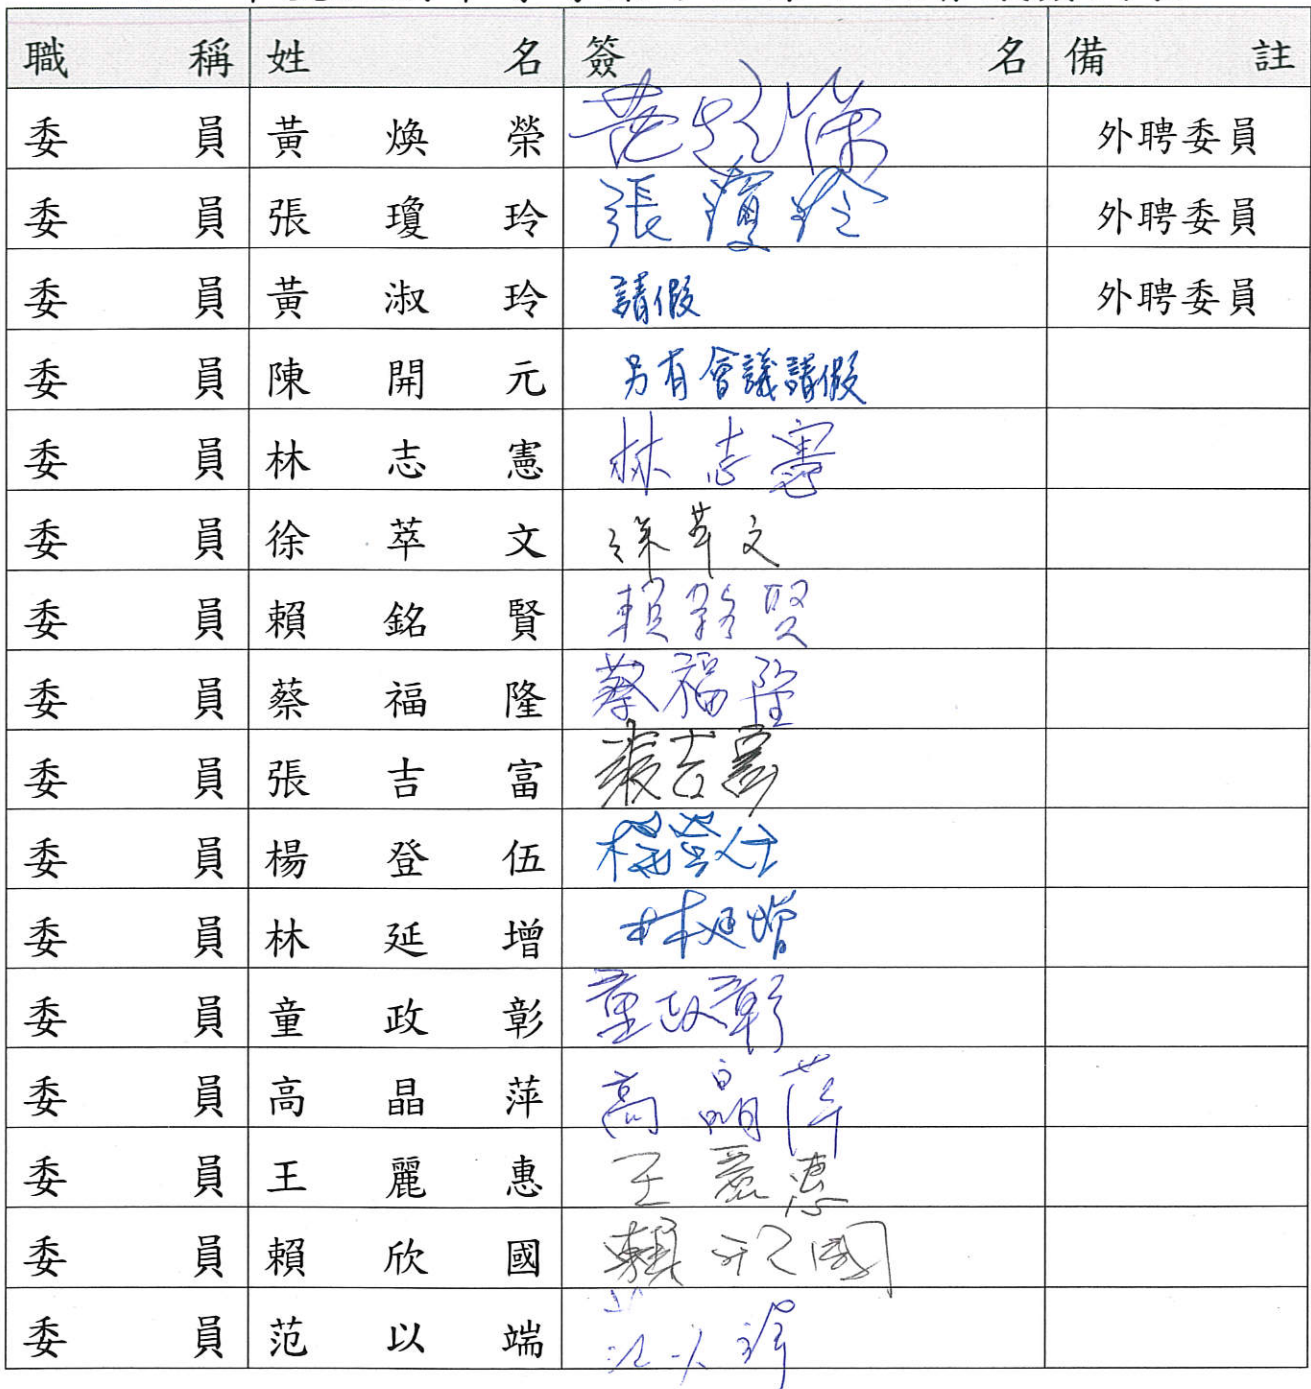 職稱 姓名 簽名 備註
委員 黃煥榮 黃煥榮 外聘委員
委員 張瓊玲 張瓊玲 外聘委員
委員 黃淑玲 請假 外聘委員
委員 陳開元 另有會議請假
委員 林志憲 林志憲
委員 徐萃文 徐萃文
委員 賴銘賢 賴銘賢
委員 蔡福隆 蔡福隆
委員 張吉富 張吉富
委員 楊登伍 楊登伍
委員 林延增 林延增
委員 童政彰 童政彰
委員 高晶萍 高晶萍
委員 王麗惠 王麗惠
委員 賴欣國 賴欣國
委員 范以端 范以端